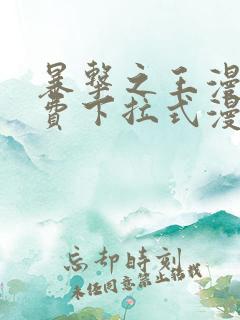 暴擊之王漫
費下拉式漫
忘却時刻
未经同意禁止转载